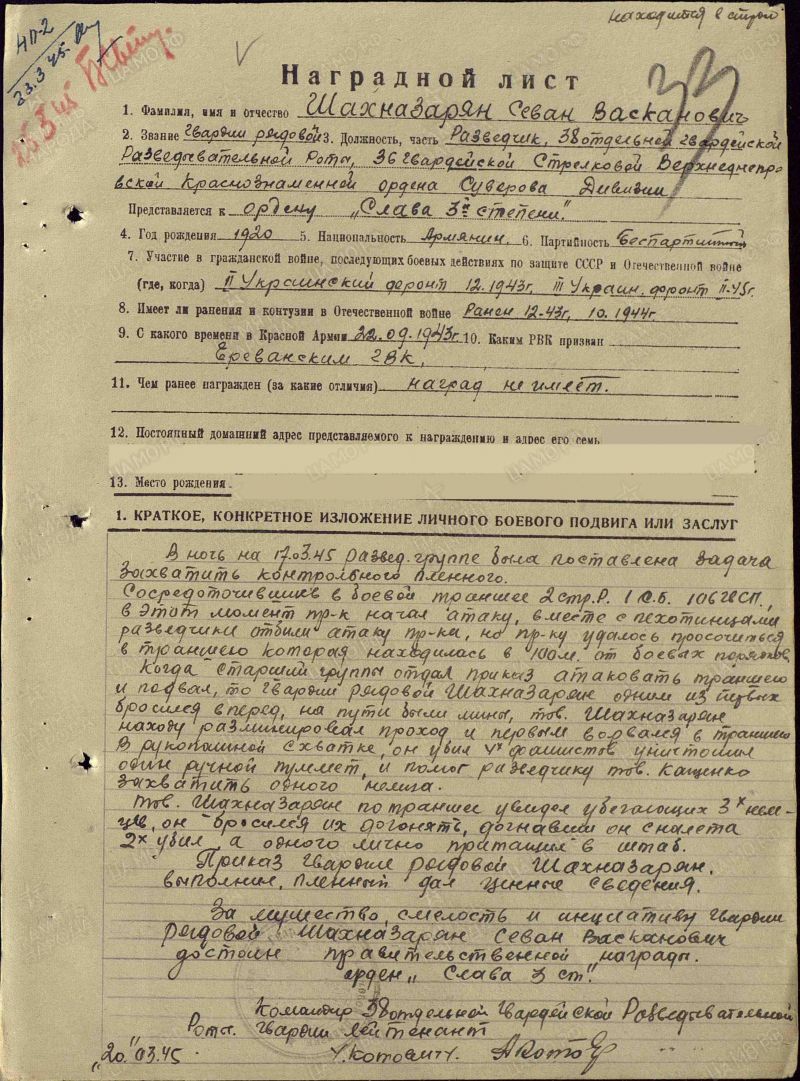 находится в строю
НП-2
23.3.45
25 3 45
Наградной лист
1. Фамилия, имя и отчество Шахназарян Севан Васканович
2. Звание Гвардии рядовой 3. Должность, часть Разведчик, 38 отдельной гвардейской
Разведывательной Роты, 36 Гвардейской Стрелковой Верхнеднепро-
вской Краснознаменной ордена Суворова Дивизии
Представляется к ордену „Слава 3й степени."
4. Год рождения 1920 5. Национальность Армянин. 6. Партийность Беспартийный
7. Участие в гражданской войне, последующих боевых действиях по защите СССР и Отечественной войне
(где, когда) II Украинский фронт 12.1943г. III Украин. фронт II-45г.
8. Имеет ли ранения и контузии в Отечественной войне Ранен 12-43г, 10.1944г
9. С какого времени в Красной Армии 22.09.1943г. 10. Каким РВК призван
Ереванским ГВК.
11. Чем ранее награжден (за какие отличия) наград не имеет.
12. Постоянный домашний адрес представляемого к награждению и адрес его семь
13. Место рождения
1. КРАТКОЕ, КОНКРЕТНОЕ ИЗЛОЖЕНИЕ ЛИЧНОГО БОЕВОГО ПОДВИГА ИЛИ ЗАСЛУГ
В ночь на 17.03.45 развед. группе была поставлена задача
захватить контрольного пленного.
Сосредоточившись в боевой траншее 2 стр.Р. 1 С.Б. 106 ГСП,
в этот момент пр-к начал атаку, вместе с пехотинцами
разведчики отбили атаку пр-ка, но пр-ку удалось просочиться
в траншею которая находилась в 100м. от боевых порядков.
Когда старший группы отдал приказ атаковать траншею
и подвал, то Гвардии рядовой Шахназарян одним из первых
бросился вперед, на пути были мины, тов. Шахназарян
находу разминировал проход и первым ворвался в траншею
В рукопашной схватке, он убил 4х фашистов уничтожил
один ручной пулмет, и помог разведчику тов. Кащенко
захватить одного немца.
Тов. Шахназарян по траншее увидел убегающих 3х нем-
цев, он бросился их догонять, догнавши он с налета
2х убил, а одного лично притащил в штаб.
Приказ Гвардии рядовой Шахназарян.
выполнил, пленный дал ценные сведения.
За мужество, смелость и инициативу Гвардии
Рядовой Шахназарян Севан Васканович
достоин правительственной награды.
орден „Слава 3 ст."
Командир 38 отдельной Гвардейской Разведывательной
Роты. Гвардии лейтенант
„20" 03.45. /Котович/.